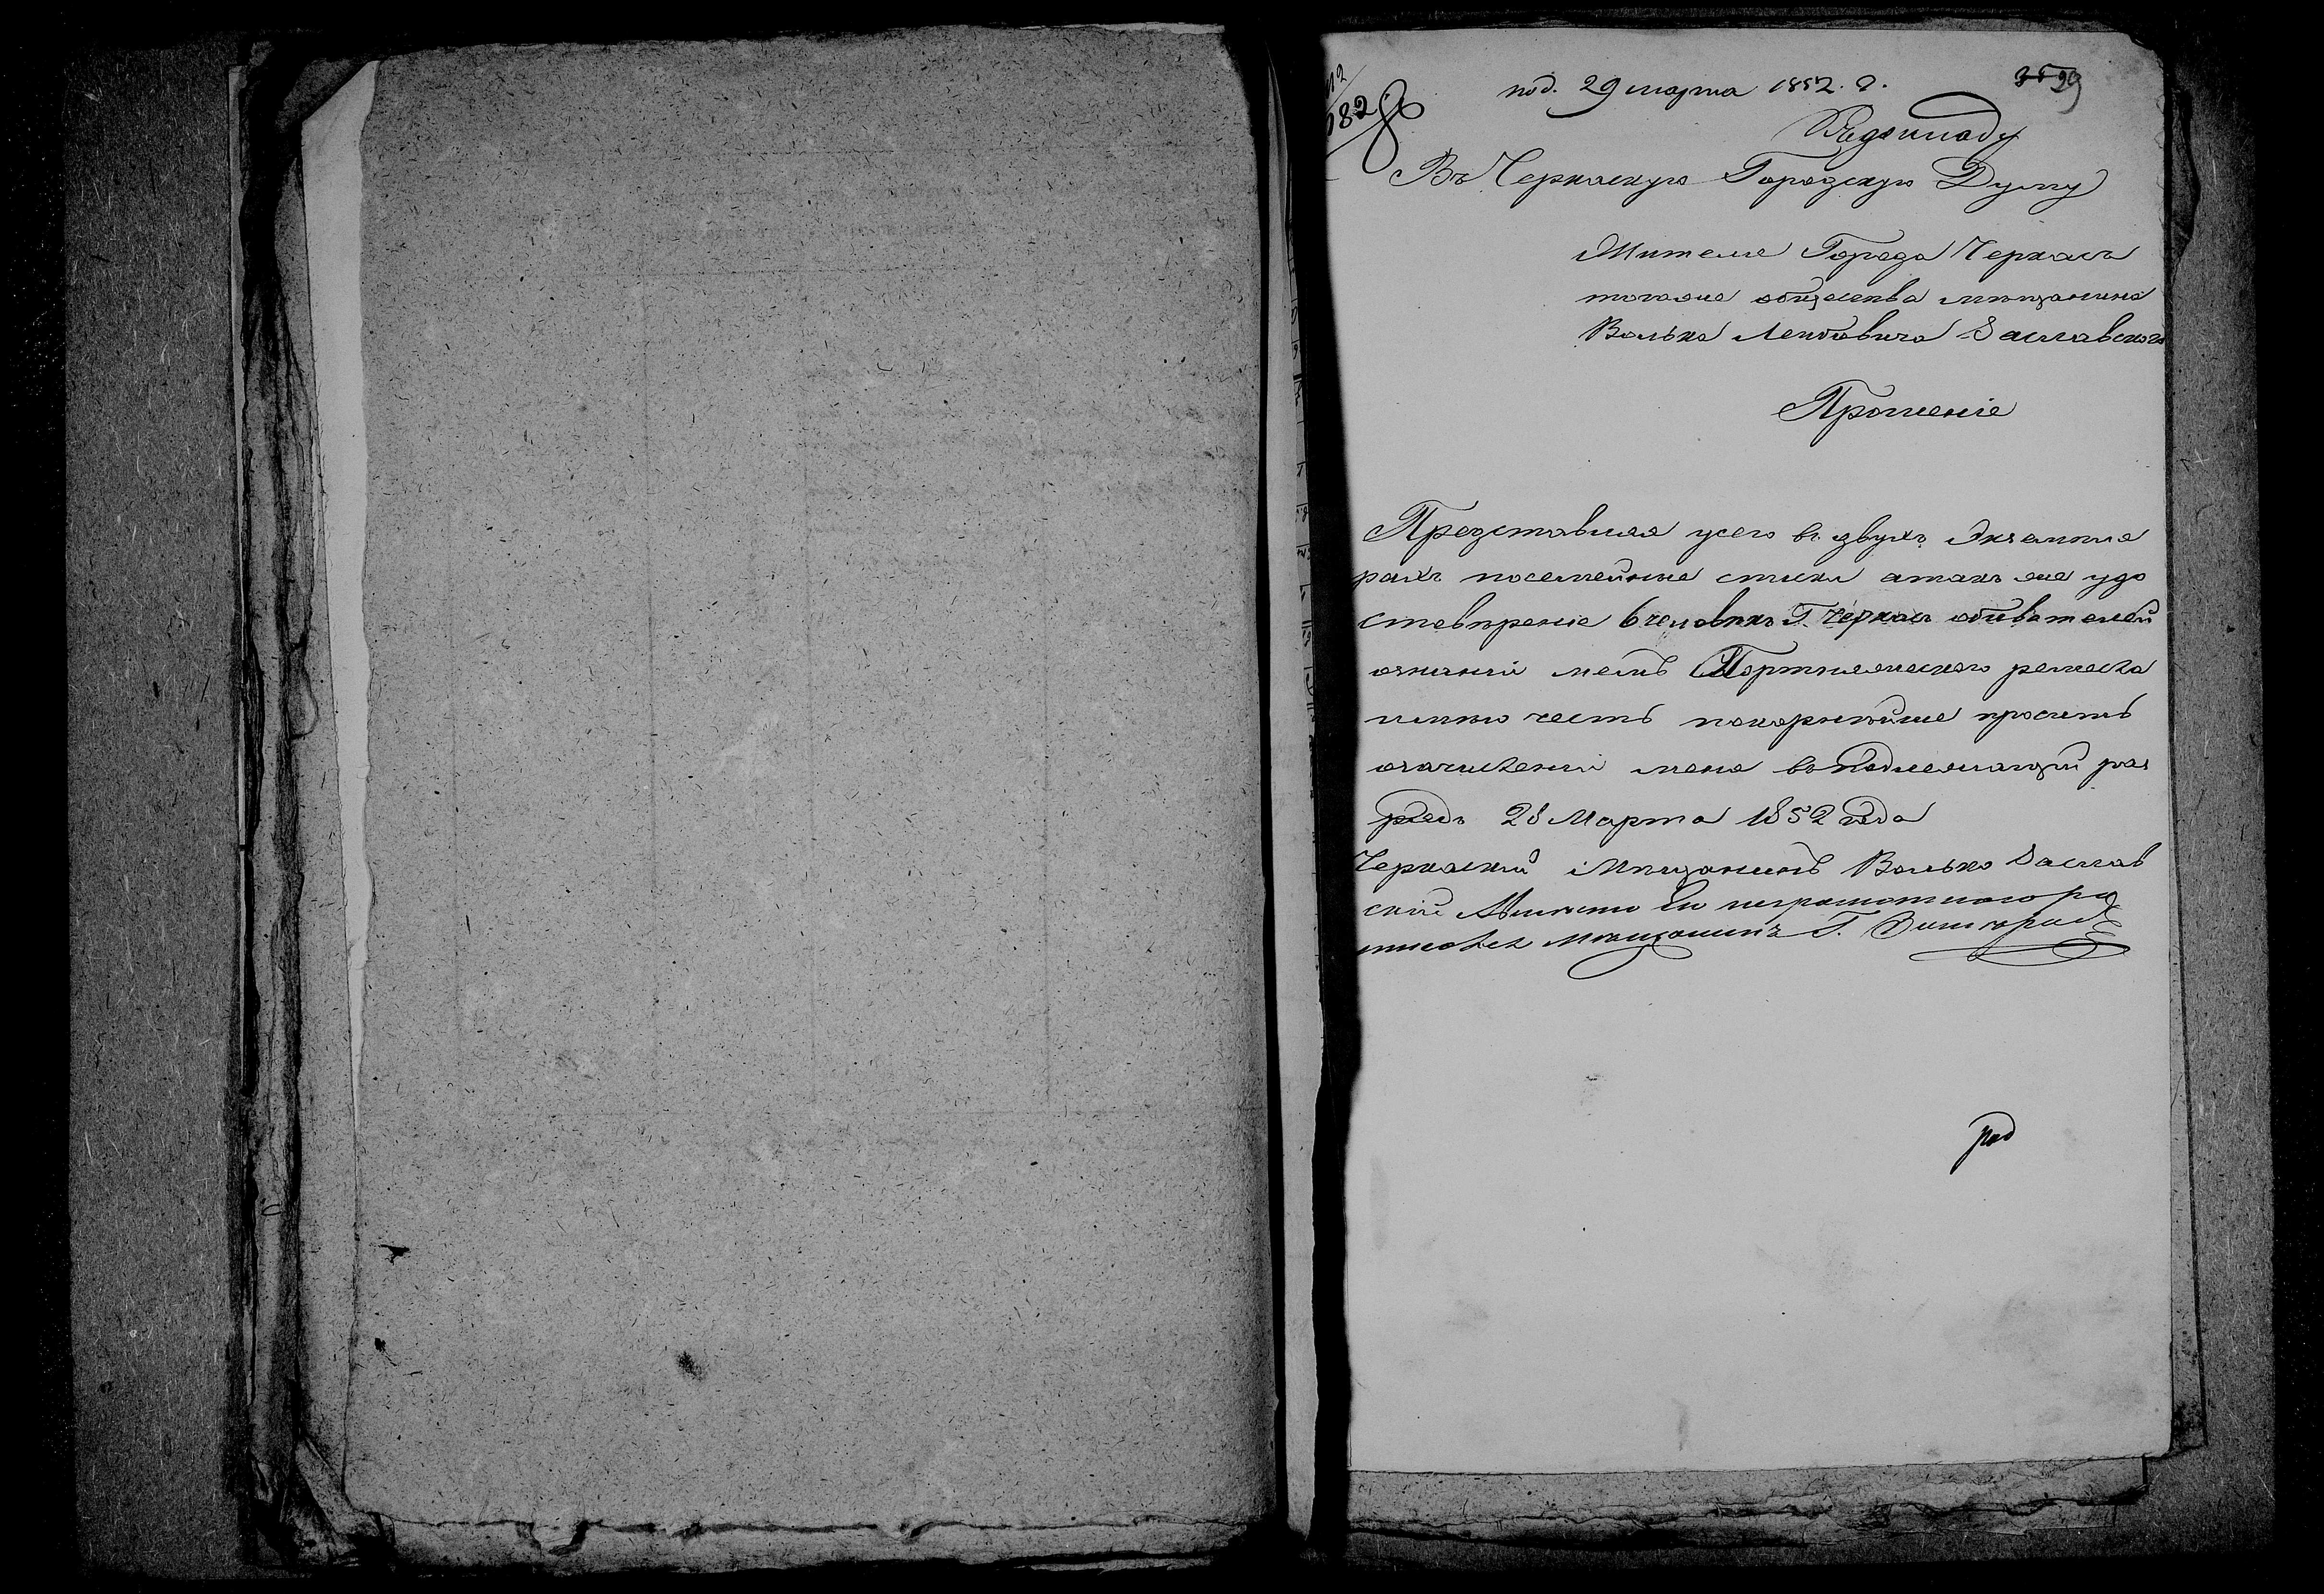 под. 29 марта 1852. г.
29
182
Къ докладу
Въ Черкаскую Городскую Думу
Жителя Города Черкасъ
тогоже общества мещанина
Волька Лейбовича Заславского
Прошеніе
Представляя усего въ двухъ Экземпля
рахъ посемейные списки атакъ же удо
стовѣреніе 6 человѣкъ Г. Черкасъ обивателей
ознаніи мещ Портняжескаго ремесла
имѣю честь покорнѣйше просить
озачисленіи меня въ подлежащій раз
рядъ 28 Марта 1852 года
Черкаскій Мѣщанинъ Волько Заслав
скій Авмѣсто Его неграмотного ро
списался Мѣщанинъ Г.